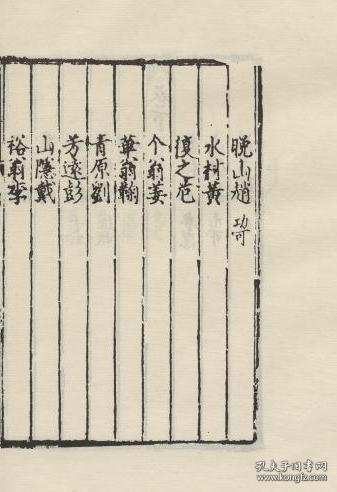 晚山趙 功可
水村黃
復之范
个翁姜
華翁鞠
青原劉
芳遠彭
山隱戴
裕翁李
孔夫子旧书网
www.kongfz.com